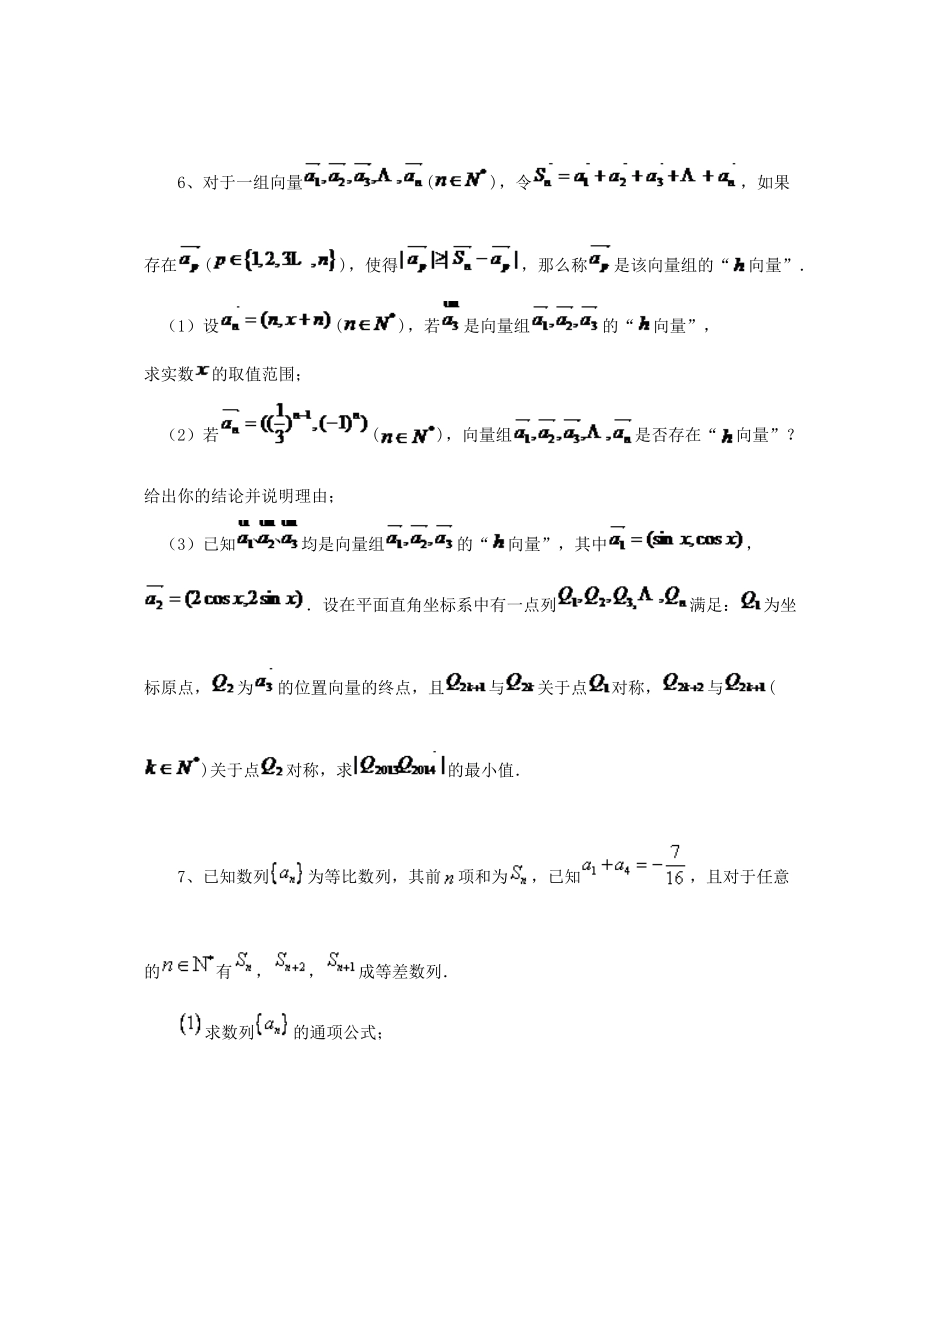 6、对于一组向量a₁,a₂,a₃,Λ,aₙ(n∈N*)，令Sₙ=a₁+a₂+a₃+Λ+aₙ，如果
存在aₚ(p∈{1,2,3L ,n})，使得|aₚ|≥|Sₙ−aₚ|，那么称aₚ是该向量组的“h向量”.
（1）设aₙ=(n,x+n)(n∈N*)，若a₃是向量组a₁,a₂,a₃的“h向量”，
求实数x的取值范围；
（2）若aₙ=((1/3)ⁿ⁻¹,(−1)ⁿ)(n∈N*)，向量组a₁,a₂,a₃,Λ,aₙ是否存在“h向量”？
给出你的结论并说明理由；
（3）已知a₁、a₂、a₃均是向量组a₁,a₂,a₃的“h向量”，其中a₁=(sin x,cos x)，
a₂=(2cos x,2sin x)．设在平面直角坐标系中有一点列Q₁,Q₂,Q₃,Λ,Qₙ满足：Q₁为坐
标原点，Q₂为a₃的位置向量的终点，且Q₂ₖ₊₁与Q₂ₖ关于点Q₁对称，Q₂ₖ₊₂与Q₂ₖ₊₁(
k∈N*)关于点Q₂对称，求|Q₂₀₁₃Q₂₀₁₄|的最小值．
7、已知数列{aₙ}为等比数列，其前n项和为Sₙ，已知a₁+a₄=−7/16，且对于任意
的n∈N*有Sₙ，Sₙ₊₂，Sₙ₊₁成等差数列．
(1)求数列{aₙ}的通项公式；